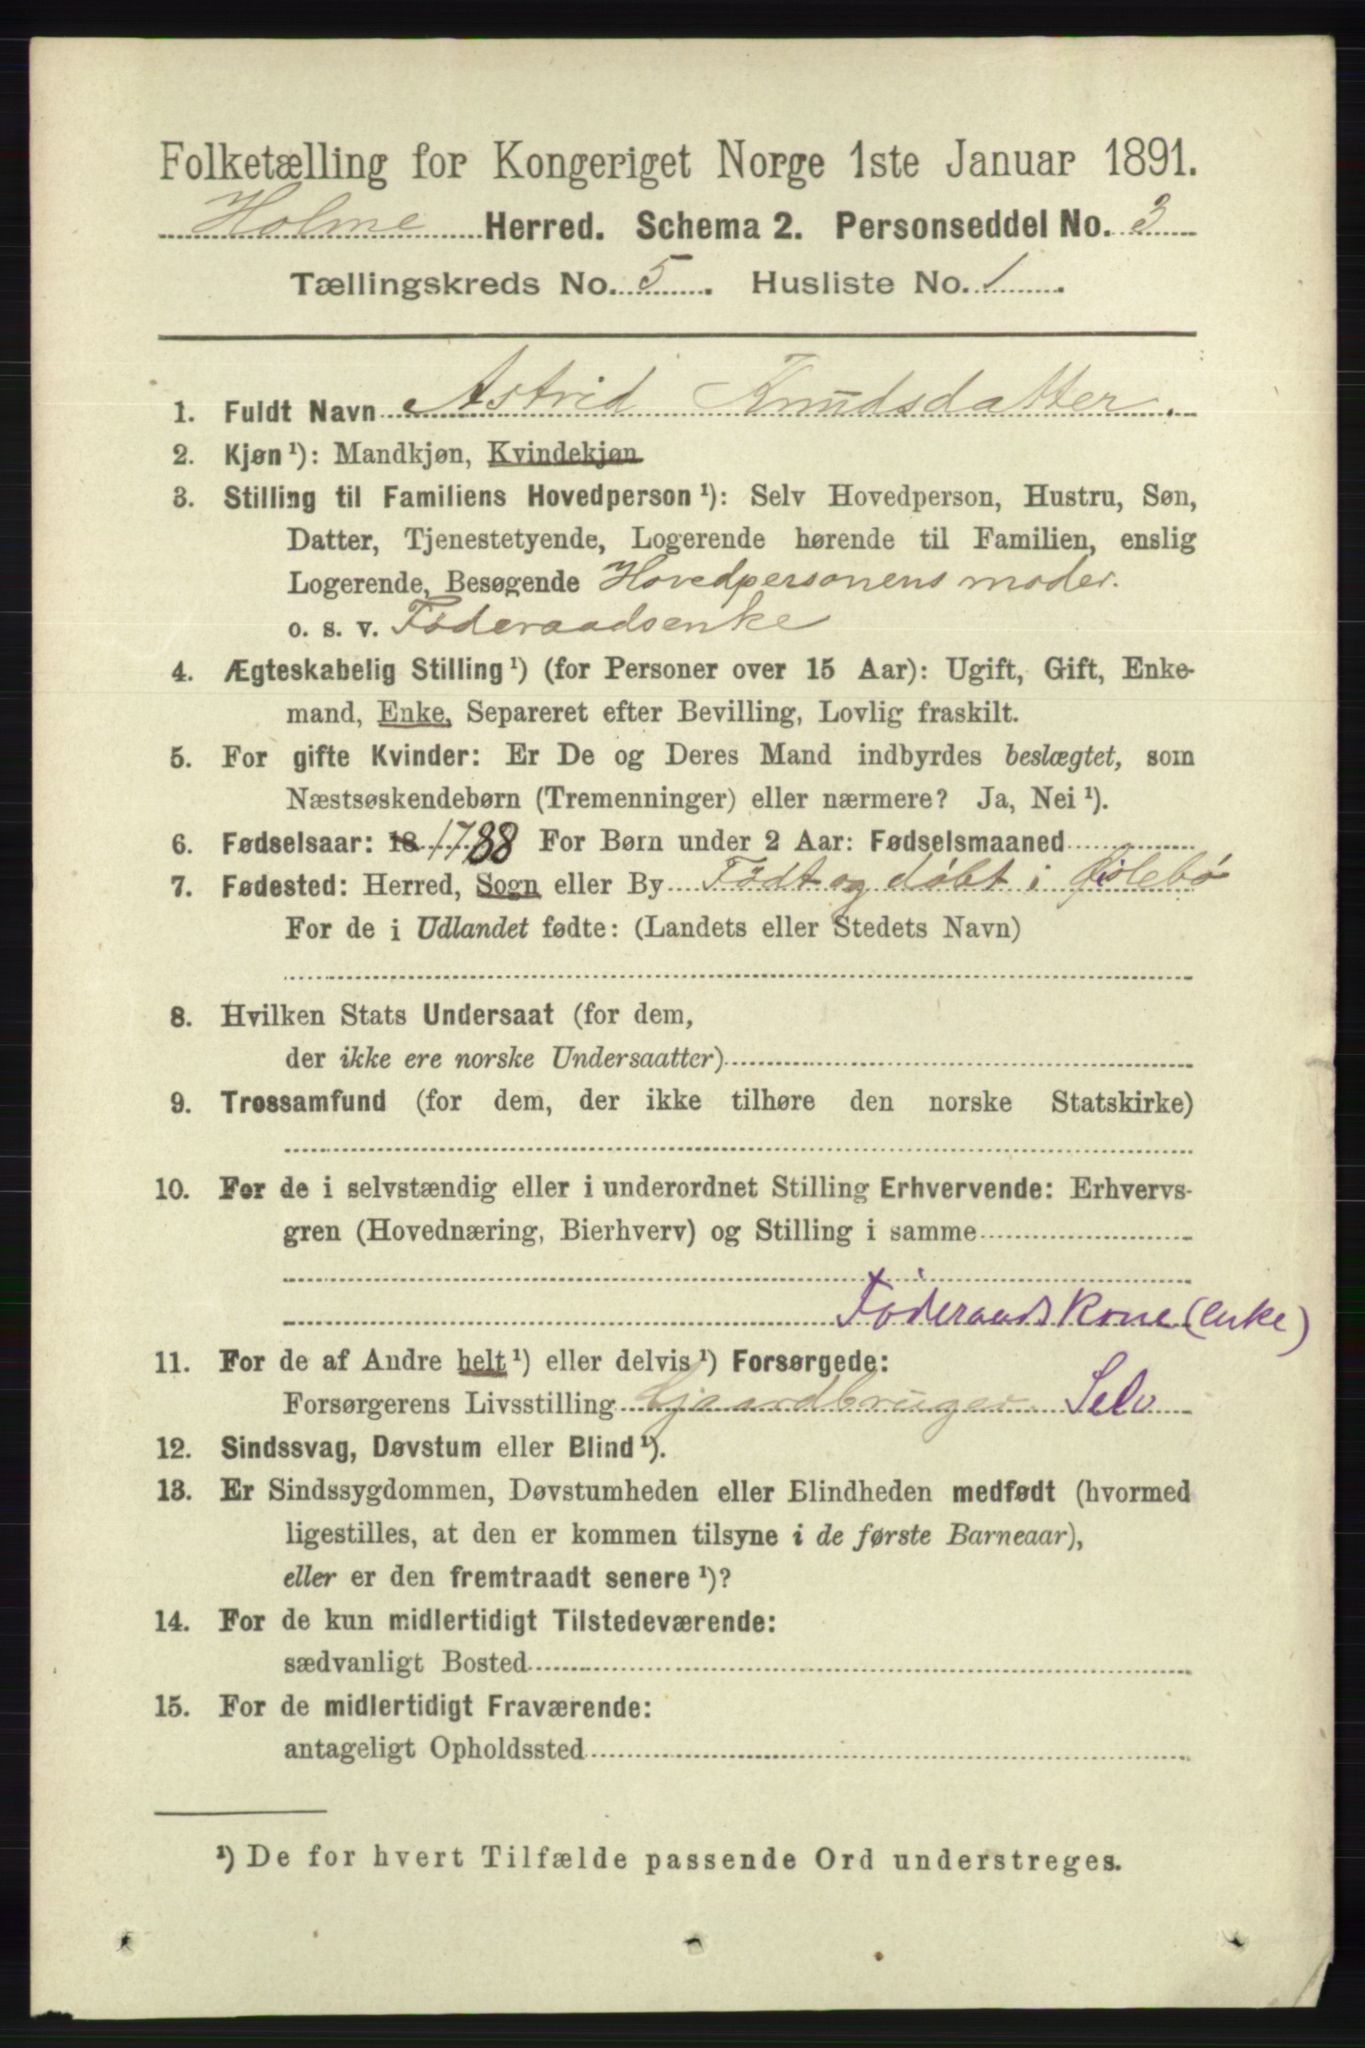 Folketælling for Kongeriget Norge 1ste Januar 1891.
Holme Herred. Schema 2. Personseddel No. 3
Tællingskreds No. 5. Husliste No. 1.
1. Fuldt Navn Astrid Knudsdatter.
2. Kjøn ¹): Mandkjøn, Kvindekjøn
3. Stilling til Familiens Hovedperson ¹): Selv Hovedperson, Hustru, Søn,
Datter, Tjenestetyende, Logerende hørende til Familien, enslig
Logerende, Besøgende Hovedpersonens moder.
o. s. v. Føderaadsenke
4. Ægteskabelig Stilling ¹) (for Personer over 15 Aar): Ugift, Gift, Enke-
mand, Enke, Separeret efter Bevilling, Lovlig fraskilt.
5. For gifte Kvinder: Er De og Deres Mand indbyrdes beslægtet, som
Næstsøskendebørn (Tremenninger) eller nærmere? Ja, Nei ¹).
6. Fødselsaar: 18 1788 For Børn under 2 Aar: Fødselsmaaned
7. Fødested: Herred, Sogn eller By Født og døbt i Øislebø
For de i Udlandet fødte: (Landets eller Stedets Navn)
8. Hvilken Stats Undersaat (for dem,
der ikke ere norske Undersaatter)
9. Trossamfund (for dem, der ikke tilhøre den norske Statskirke)
10. For de i selvstændig eller i underordnet Stilling Erhvervende: Erhvervs-
gren (Hovednæring, Bierhverv) og Stilling i samme
Føderaadskone (enke)
11. For de af Andre helt ¹) eller delvis ¹) Forsørgede:
Forsørgerens Livsstilling Gjaardbruger Selv
12. Sindssvag, Døvstum eller Blind ¹).
13. Er Sindssygdommen, Døvstumheden eller Blindheden medfødt (hvormed
ligestilles, at den er kommen tilsyne i de første Barneaar),
eller er den fremtraadt senere ¹)?
14. For de kun midlertidigt Tilstedeværende:
sædvanligt Bosted
15. For de midlertidigt Fraværende:
antageligt Opholdssted
¹) De for hvert Tilfælde passende Ord understreges.